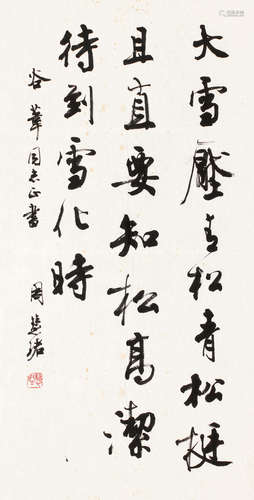 大雪壓青松青松挺
且直要知松高潔
待到雪化時
华同志正書
周慧珺